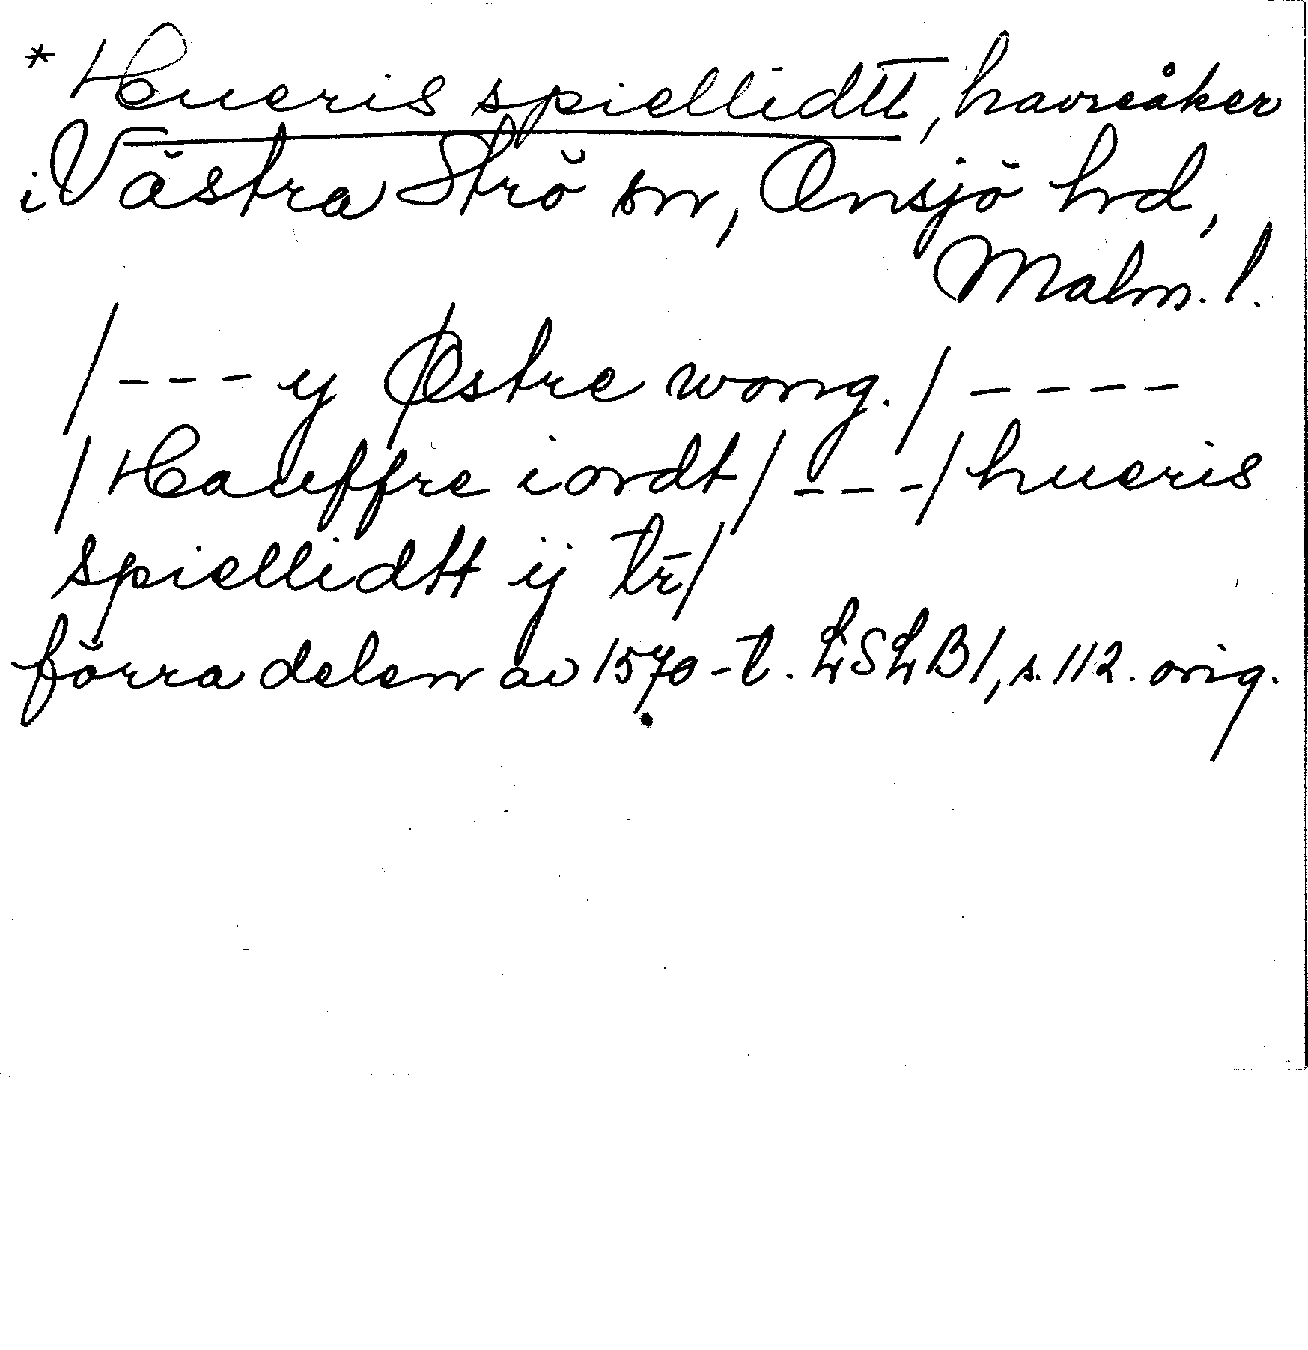 * Hueris spiellidtt, havreåker
i Västra Strö sn, Onsjö hd,
Malm. l.
/--- y Østre wong./ ----
/Hauffre iordt/ ---/hueris
spiellidtt ij tr̄/
förra delen av 1570-t. LSLB1, s. 112. orig.